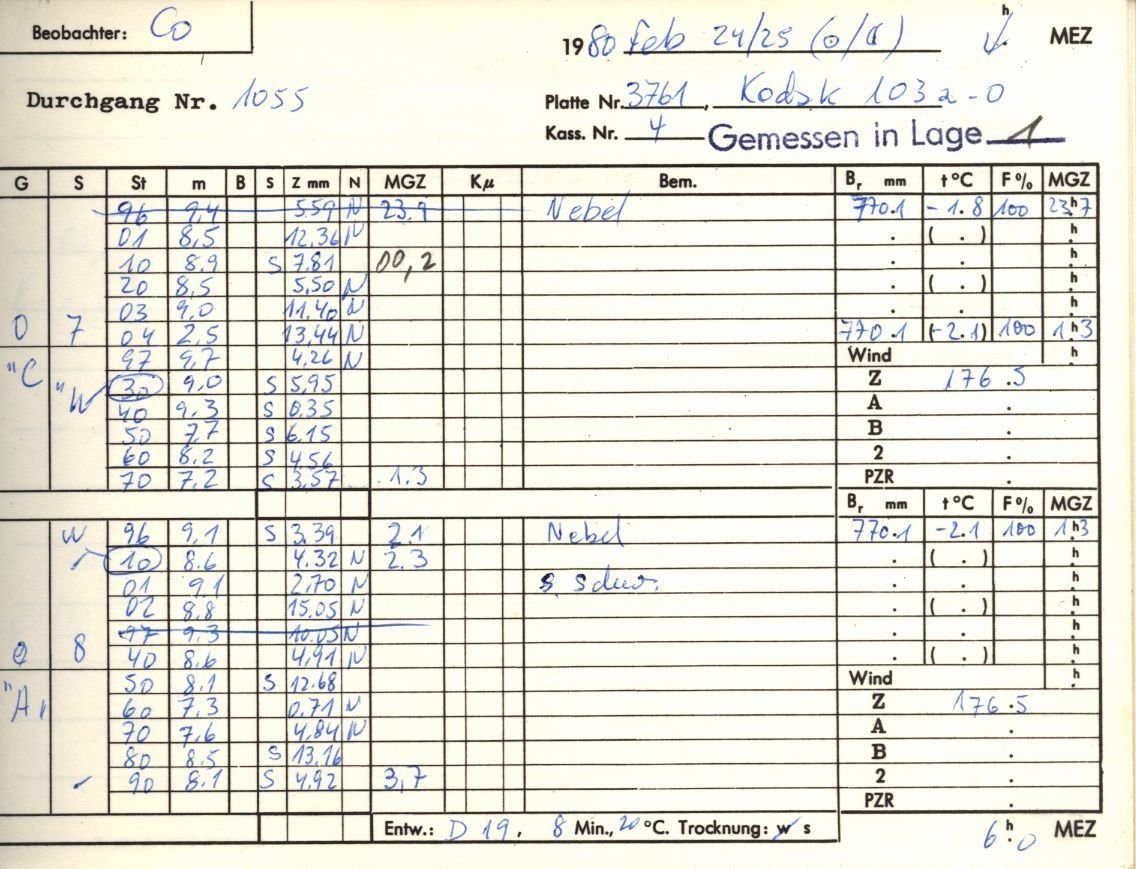 Beobachter: Co
1980 Feb 24/25 (o/a) h MEZ
Durchgang Nr. 1055
Platte Nr. 3761, Kodak 103a-O
Kass. Nr. 4 Gemessen in Lage 1
G S St m B S Z mm N MGZ Kμ Bem. Br mm t°C F% MGZ
96 9,4 5.59 N 23.9 Nebel 770.1 -1.8 100 23h7
01 8,5 12,36 N . ( . ) h
10 8.9 S 7.81 00,2 . . h
20 8,5 5,50 N . ( . ) h
03 9,0 11.40 N . . h
0 7 04 2,5 13,44 N 770.1 (-2.1) 100 1h3
"C "W 97 9,7 4,26 N Wind h
30 9,0 S 5,95 Z 176.5
40 9.3 S 0.35 A .
50 7,7 S 6.15 B .
60 8.2 S 4.56 2 .
70 7,2 S 3,57 1.3 PZR .
Br mm t°C F% MGZ
W 96 9,1 S 3.39 2.1 Nebel 770.1 -2.1 100 1h3
10 8.6 4.32 N 2.3 . ( . ) h
01 9,1 2,70 N s. schw. . . h
02 8.8 15.05 N . ( . ) h
97 9,3 10.05 N . . h
0 8 40 8.6 4,91 N . ( . ) h
"A" 50 8.1 S 12.68 Wind h
60 7.3 0.71 N Z 176.5
70 7,6 4,84 N A .
80 8.5 S 13,16 B .
90 8.1 S 4.92 3,7 2 .
PZR .
Entw.: D 19, 8 Min., 20 °C. Trocknung: w s
6h0 MEZ